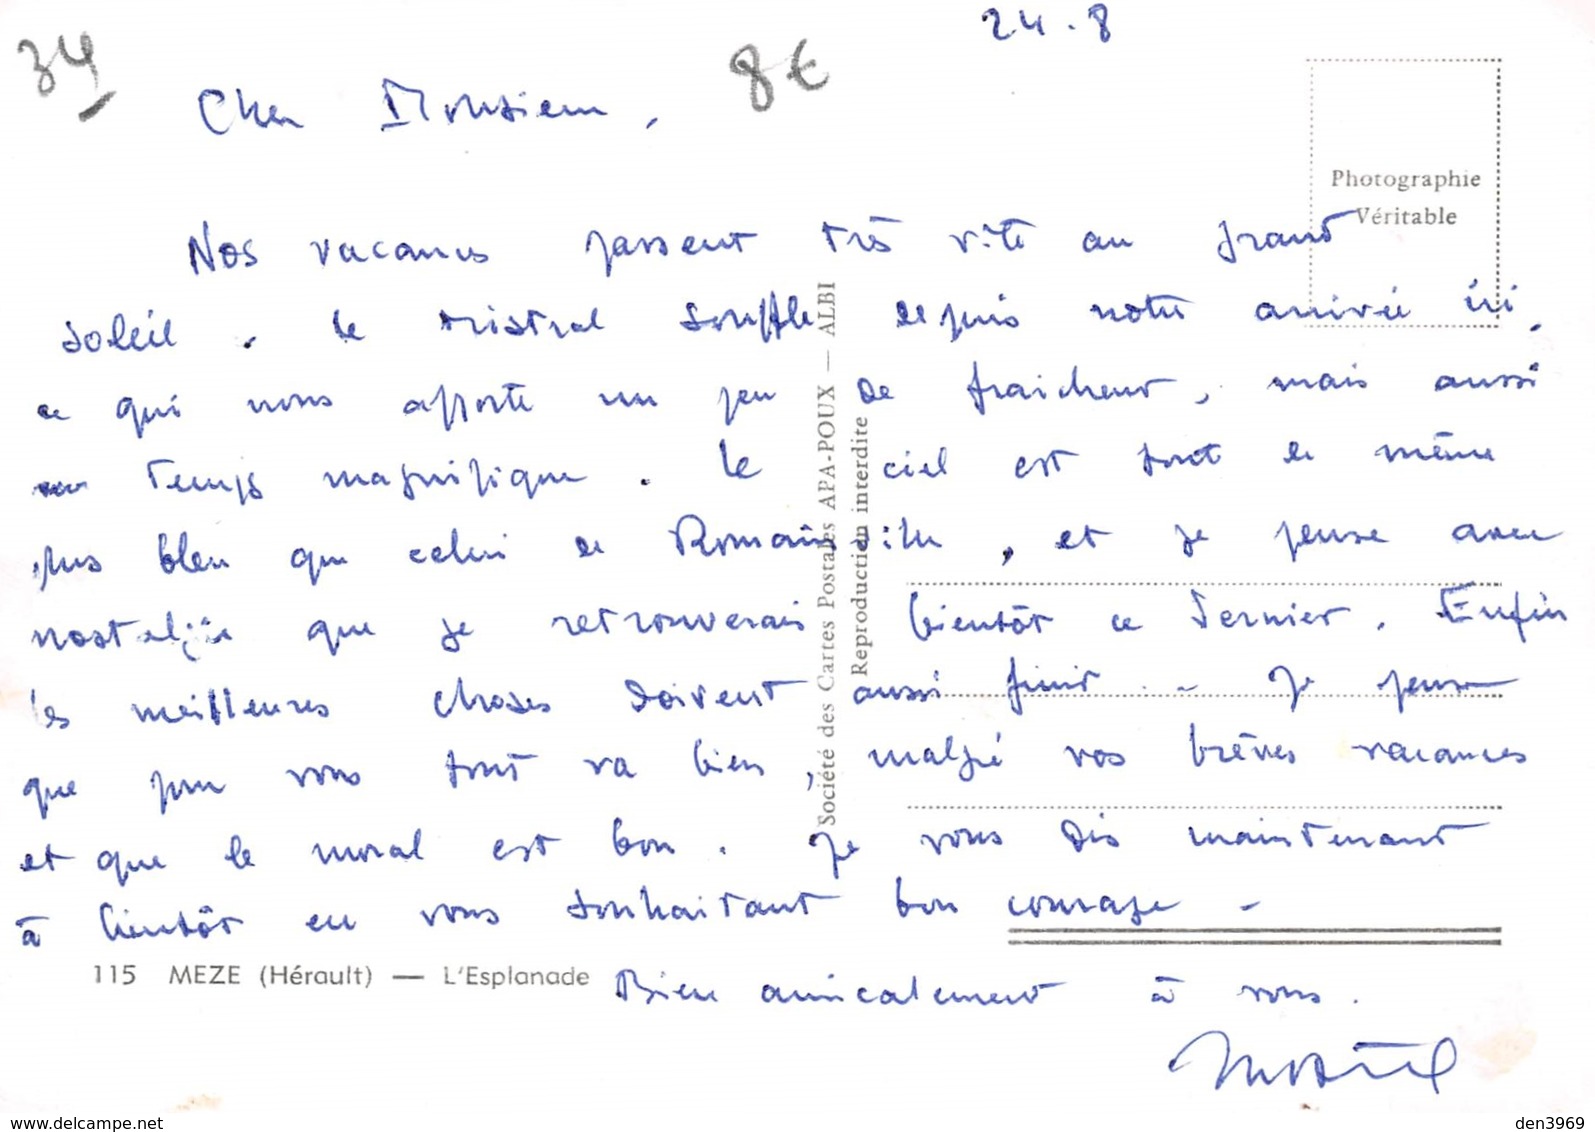 24.8
34
8€
Cher Monsieur,
Photographie
Véritable
Nos vacances passent très vite au grand
soleil. Le mistral souffle depuis notre arrivée ici,
ce qui nous apporte un peu de fraicheur, mais aussi
un temps magnifique. Le ciel est tout de même
plus bleu que celui de Romainville, et je pense avec
nostalgie que je retrouverais bientôt ce dernier. Enfin
les meilleures choses doivent aussi finir - Je pense
que pour vous tout va bien, malgré vos brèves vacances
et que le moral est bon. Je vous dis maintenant
à bientôt en vous souhaitant bon courage -
115 MEZE (Hérault) — L'Esplanade
Bien amicalement à vous.
Société des Cartes Postales APA-POUX — ALBI
Reproduction interdite
www.delcampe.net
den3969